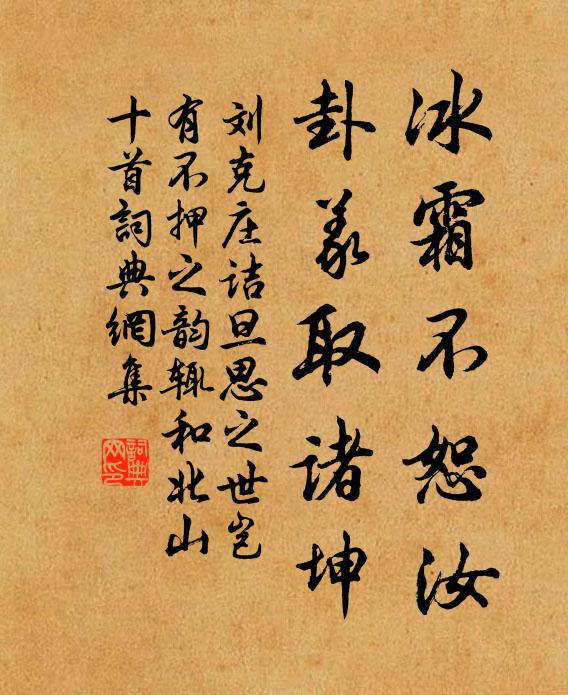 冰霜不恕汝
卦义取诸坤
刘克庄诘旦思之世岂
有不押之韵辄和北山
十首詞典網集
詞典网印